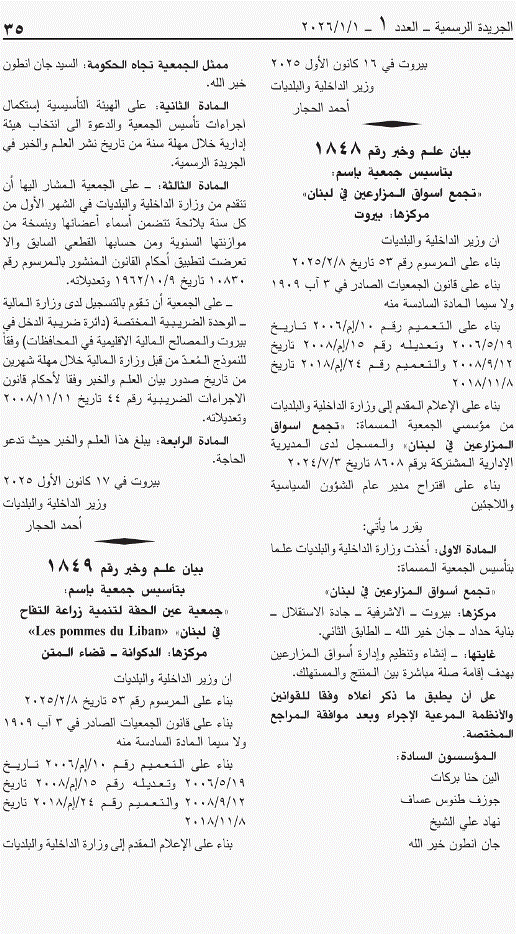 الجريدة الرسمية ــ العدد ١ ــ ٢٠٢٦/١/١
٣٥
بيروت في ١٦ كانون الأول ٢٠٢٥
وزير الداخلية والبلديات
أحمد الحجار
بيان علم وخبر رقم ١٨٤٨
بتأسيس جمعية بإسم:
«تجمع اسواق المزارعين في لبنان»
مركزها: بيروت
ان وزير الداخلية والبلديات
بناء على المرسوم رقم ٥٣ تاريخ ٢٠٢٥/٢/٨
بناء على قانون الجمعيات الصادر في ٣ آب ١٩٠٩
ولا سيما المادة السادسة منه
بناء على التعميم رقم ١٠/إم/٢٠٠٦ تاريخ
٢٠٠٦/٥/١٩ وتعديله رقم ١٥/إم/٢٠٠٨ تاريخ
٢٠٠٨/٩/١٢ والتعميم رقم ٢٤/إم/٢٠١٨ تاريخ
٢٠١٨/١١/٨
بناء على الإعلام المقدم إلى وزارة الداخلية والبلديات
من مؤسسي الجمعية المسماة: «تجمع اسواق
المزارعين في لبنان» والمسجل لدى المديرية
الإدارية المشتركة برقم ٨٦٠٨ تاريخ ٢٠٢٤/٧/٣
بناء على اقتراح مدير عام الشؤون السياسية
واللاجئين
يقرر ما يأتي:
المادة الاولى: أخذت وزارة الداخلية والبلديات علما
بتأسيس الجمعية المسماة:
«تجمع أسواق المزارعين في لبنان»
مركزها: بيروت ــ الاشرفية ــ جادة الاستقلال ــ
بناية حداد ــ جان خير الله ــ الطابق الثاني.
غايتها: ــ إنشاء وتنظيم وإدارة أسواق المزارعين
بهدف إقامة صلة مباشرة بين المنتج والمستهلك.
على أن يطبق ما ذكر أعلاه وفقا للقوانين
والأنظمة المرعية الإجراء وبعد موافقة المراجع
المختصة.
المؤسسون السادة:
الين حنا بركات
جوزف طنوس عساف
نهاد علي الشيخ
جان انطون خير الله
ممثل الجمعية تجاه الحكومة: السيد جان انطون
خير الله.
المادة الثانية: على الهيئة التأسيسية إستكمال
اجراءات تأسيس الجمعية والدعوة الى انتخاب هيئة
إدارية خلال مهلة سنة من تاريخ نشر العلم والخبر في
الجريدة الرسمية.
المادة الثالثة: ــ على الجمعية المشار اليها أن
تتقدم من وزارة الداخلية والبلديات في الشهر الأول من
كل سنة بلائحة تتضمن أسماء أعضائها وبنسخة من
موازنتها السنوية ومن حسابها القطعي السابق والا
تعرضت لتطبيق أحكام القانون المنشور بالمرسوم رقم
١٠٨٣٠ تاريخ ١٩٦٢/١٠/٩ وتعديلاته.
ــ على الجمعية أن تقوم بالتسجيل لدى وزارة المالية
ــ الوحدة الضريبية المختصة (دائرة ضريبة الدخل في
بيروت والمصالح المالية الاقليمية في المحافظات) وفقاً
للنموذج المُعدّ من قبل وزارة المالية خلال مهلة شهرين
من تاريخ صدور بيان العلم والخبر وفقا لأحكام قانون
الاجراءات الضريبية رقم ٤٤ تاريخ ٢٠٠٨/١١/١١
وتعديلاته.
المادة الرابعة: يبلغ هذا العلم والخبر حيث تدعو
الحاجة.
بيروت في ١٧ كانون الأول ٢٠٢٥
وزير الداخلية والبلديات
أحمد الحجار
بيان علم وخبر رقم ١٨٤٩
بتأسيس جمعية بإسم:
«جمعية عين الحفة لتنمية زراعة التفاح
في لبنان» «Les pommes du Liban»
مركزها: الدكوانة ــ قضاء المتن
ان وزير الداخلية والبلديات
بناء على المرسوم رقم ٥٣ تاريخ ٢٠٢٥/٢/٨
بناء على قانون الجمعيات الصادر في ٣ آب ١٩٠٩
ولا سيما المادة السادسة منه
بناء على التعميم رقم ١٠/إم/٢٠٠٦ تاريخ
٢٠٠٦/٥/١٩ وتعديله رقم ١٥/إم/٢٠٠٨ تاريخ
٢٠٠٨/٩/١٢ والتعميم رقم ٢٤/إم/٢٠١٨ تاريخ
٢٠١٨/١١/٨
بناء على الإعلام المقدم إلى وزارة الداخلية والبلديات